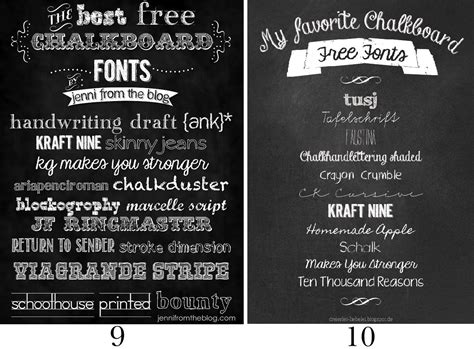 THE best free
CHALKBOARD
FONTS
BY
jenni from the blog
handwriting draft {ank}*
KRAFT NINE skinny jeans
kg makes you stronger
ariapenciroman chalkduster
blockography marcelle script
JF RINGMASTER
RETURN TO SENDER stroke dimension
VIAGRANDE STRIPE
schoolhouse printed bounty
jennifromtheblog.com
9
My favorite Chalkboard
Free Fonts
tusj
Tafelschrift
FAUSTINA
Chalkhandlettering shaded
Crayon Crumble
CK Cursive
KRAFT NINE
Homemade Apple
Schalk
Makes You Stronger
Ten Thousand Reasons
10